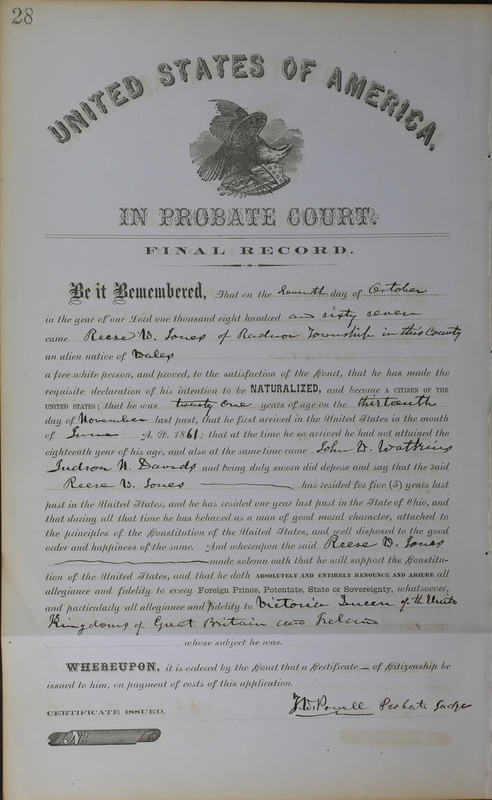 28
UNITED STATES OF AMERICA.
IN PROBATE COURT.
FINAL RECORD.
Be it Remembered, That on the Seventh day of October
in the year of our Lord one thousand eight hundred and sixty seven
came Reese W. Jones of Radnor Township in this County
an alien native of Wales
a free white person, and proved, to the satisfaction of the Court, that he has made the
requisite declaration of his intention to be NATURALIZED, and become A CITIZEN OF THE
UNITED STATES; that he was twenty one years of age on the thirteenth
day of November last past, that he first arrived in the United States in the month
of June A. D. 1861; that at the time he so arrived he had not attained the
eighteenth year of his age, and also at the same time came John D. Watkins
Judson N. Davids and being duly sworn did depose and say that the said
Reese W. Jones has resided for five (5) years last
past in the United States, and he has resided one year last past in the State of Ohio, and
that during all that time he has behaved as a man of good moral character, attached to
the principles of the Constitution of the United States, and well disposed to the good
order and happiness of the same. And whereupon the said Reese W. Jones
made solemn oath that he will support the Constitu-
tion of the United States, and that he doth ABSOLUTELY AND ENTIRELY RENOUNCE AND ABJURE all
allegiance and fidelity to every Foreign Prince, Potentate, State or Sovereignty, whatsoever,
and particularly all allegiance and fidelity to Victoria Queen of the United
Kingdoms of Great Britain and Ireland
whose subject he was.
WHEREUPON, it is ordered by the Court that a Certificate of Citizenship be
issued to him, on payment of costs of this application.
T. W. Powell Probate Judge
CERTIFICATE ISSUED.
No.